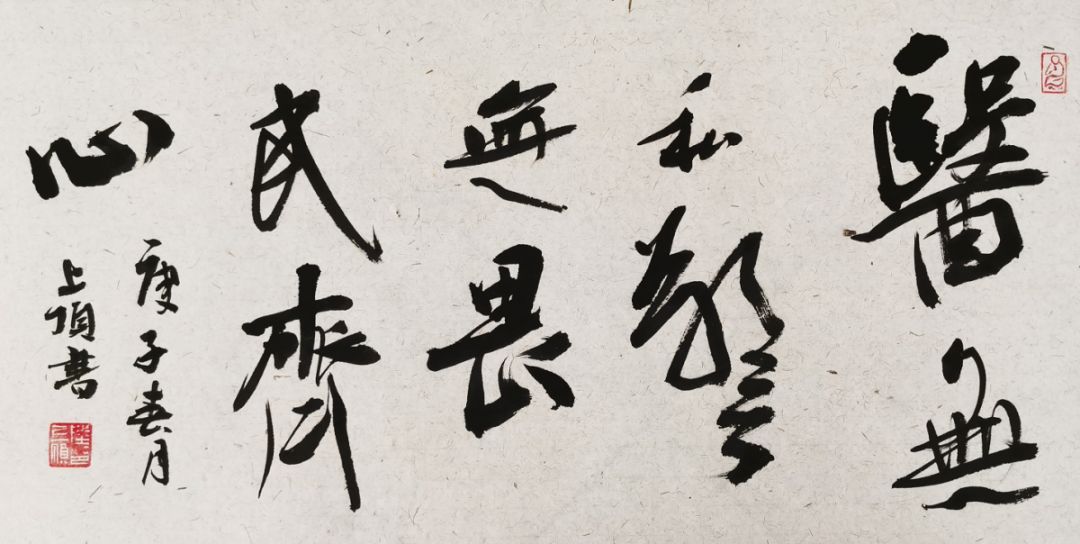 醫無
私警
無畏
民齊
心
庚子春月
上書